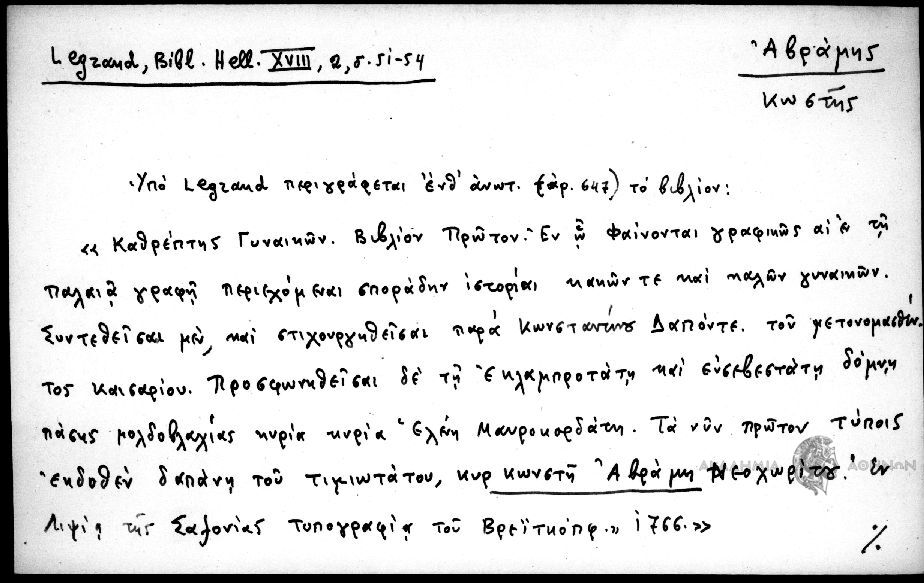 Legrand, Bibl. Hell. XVIII, 2, σ. 51-54
Ἀβράμης
Κωστῆς
Ὑπό Legrand περιγράφεται ἔνθ' ἀνωτ. (ἀρ. 647) τό βιβλίον:
«Καθρέπτης Γυναικῶν. Βιβλίον Πρῶτον. Ἐν ᾧ φαίνονται γραφικῶς αἱ ἐν τῇ
παλαιᾷ γραφῇ περιεχόμεναι σποράδην ἱστορίαι κακῶν τε καί καλῶν γυναικῶν.
Συντεθεῖσαι μέν, καί στιχουργηθεῖσαι παρά Κωνσταντίνου Δαπόντε. τοῦ μετονομασθέν-
τος Καισαρίου. Προσφωνηθεῖσαι δέ τῇ ἐκλαμπροτάτῃ καί εὐσεβεστάτῃ δόμνῃ
πάσης μολδοβλαχίας κυρίᾳ κυρίᾳ Ἑλένῃ Μαυροκορδάτῃ. Τά νῦν πρῶτον τύποις
ἐκδοθέν δαπάνῃ τοῦ τιμιωτάτου, κυρ κωνστῆ Ἀβράμη Νεοχωρίτου. Ἐν
Λιψίᾳ τῆς Σαξονίας τυπογραφίᾳ τοῦ Βρεϊτκόπφ.» 1766.»
%
ΑΚΑΔΗΜΙΑ ΑΘΗΝΩΝ